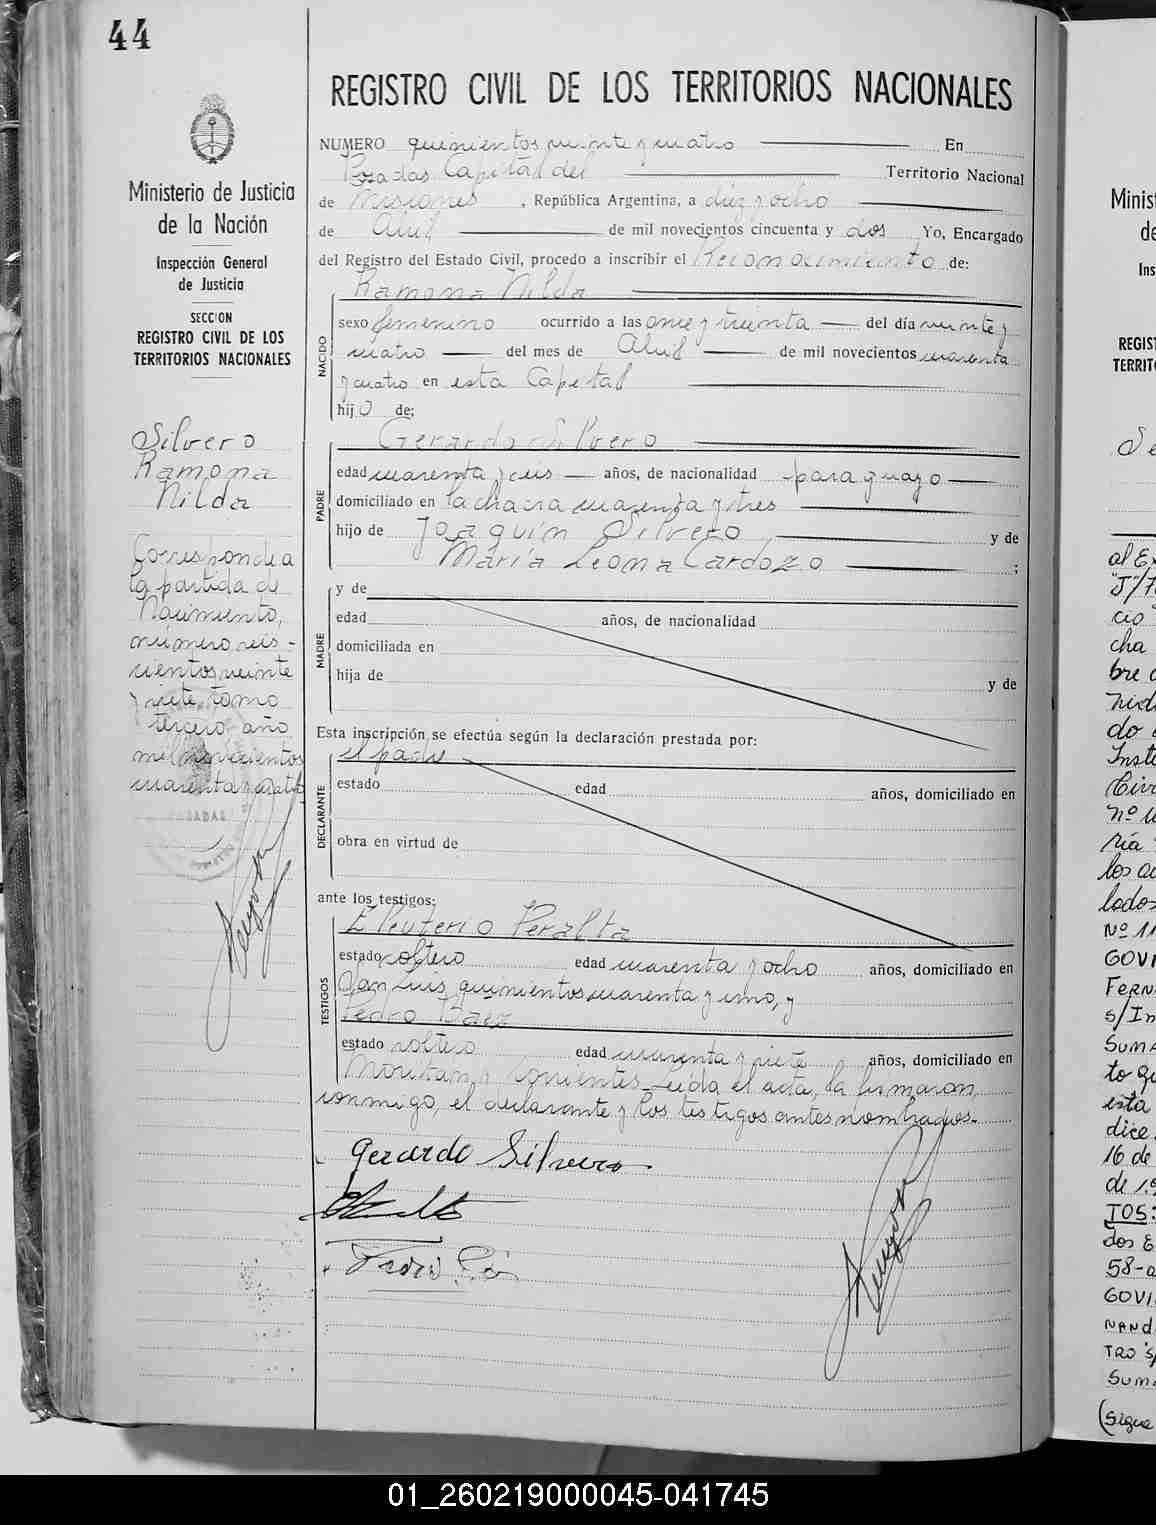 44
Ministerio de Justicia
de la Nación
Inspección General
de Justicia
SECCION
REGISTRO CIVIL DE LOS
TERRITORIOS NACIONALES
Silvero
Ramona
Nilda
Corresponde a
la partida de
Nacimiento,
número seis-
cientos veinte
y siete tomo
tercero año
mil novecientos
cuarenta y cuatro
REGISTRO CIVIL DE LOS TERRITORIOS NACIONALES
NUMERO quinientos veinte y cuatro En
Posadas Capital del Territorio Nacional
de Misiones, República Argentina, a diez y ocho
de Abril de mil novecientos cincuenta y dos Yo, Encargado
del Registro del Estado Civil, procedo a inscribir el Reconocimiento de:
Ramona Nilda
NACIDO
sexo femenino ocurrido a las once y treinta del día veinte y
cuatro del mes de Abril de mil novecientos cuarenta
y cuatro en esta Capital
hijo de;
Gerardo Silvero
PADRE
edad cuarenta y seis años, de nacionalidad paraguayo
domiciliado en la chacra cuarenta y tres
hijo de Joaquín Silvero y de
María Leona Cardozo ;
MADRE
y de
edad años, de nacionalidad
domiciliada en
hija de y de
Esta inscripción se efectúa según la declaración prestada por:
el padre
DECLARANTE
estado edad años, domiciliado en
obra en virtud de
ante los testigos:
Eleuterio Peralta
TESTIGOS
estado soltero edad cuarenta y ocho años, domiciliado en
San Luis quinientos cuarenta y uno, y
Pedro Báez
estado soltero edad cuarenta y siete años, domiciliado en
y Corrientes. Leída el acta, la firmaron,
conmigo, el declarante y los testigos antes nombrados.
Gerardo Silvero
Minist
de
Ins
REGIST
TERRIT
al Ex
cio
cha
bre d
do
Inste
Civi
nº
ría
los
lados
Nº 11
GOVI
FERN
s/In
SUMA
to qu
esta
dice
16 de
de 19
TOS:
dos E
58-
GOVI
NAND
TRO S
SUM
(sigue
01_260219000045-041745